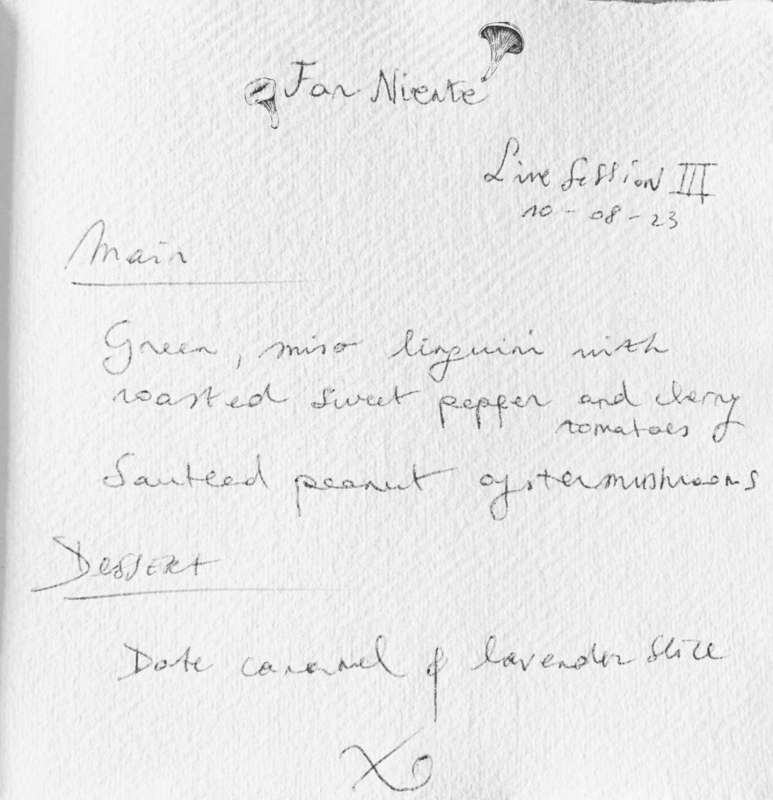 Far Niente
Live Session III
10-08-23
Main
Green, miso linguini with
roasted sweet pepper and cherry
tomatoes
Sauteed peanut oyster mushrooms
Dessert
Date caramel & lavender slice